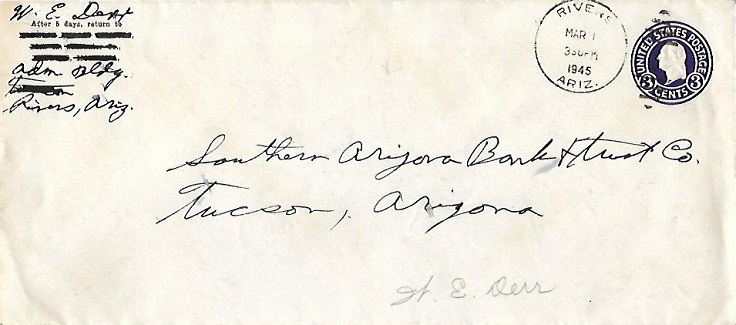 W. E. Derr
After 5 days, return to
Adm. Bldg.
Rivers, Ariz.
RIVERS
MAR 1
330PM
1945
ARIZ.
UNITED STATES POSTAGE
3 CENTS 3
Southern Arizona Bank & Trust Co.
Tucson, Arizona
W. E. Derr